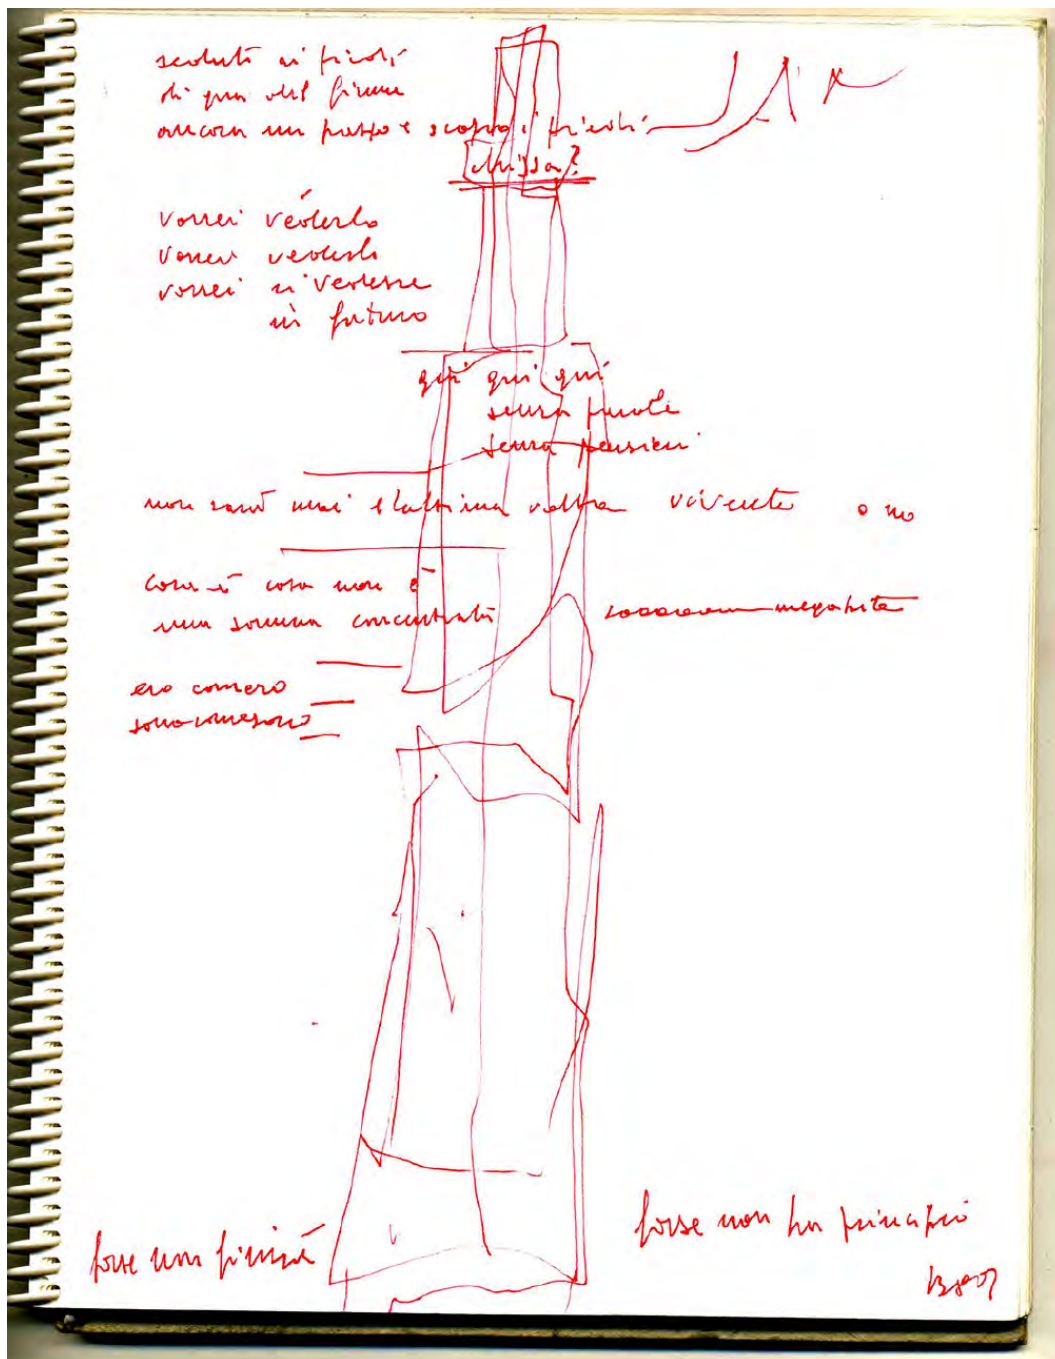 seduti ai piedi
di qua del fiume
ancora un passo e scopro i piedi
chissà?
vorrei vederlo
vorrei vederlo
vorrei si vedesse
in futuro
qui qui qui
senza parole
senza pensieri
non sarà mai l'ultima volta vivente o no
cosa è cosa non è
una somma concentrata
ero comero
sonocomesono
forse non finirà
forse non ha principio